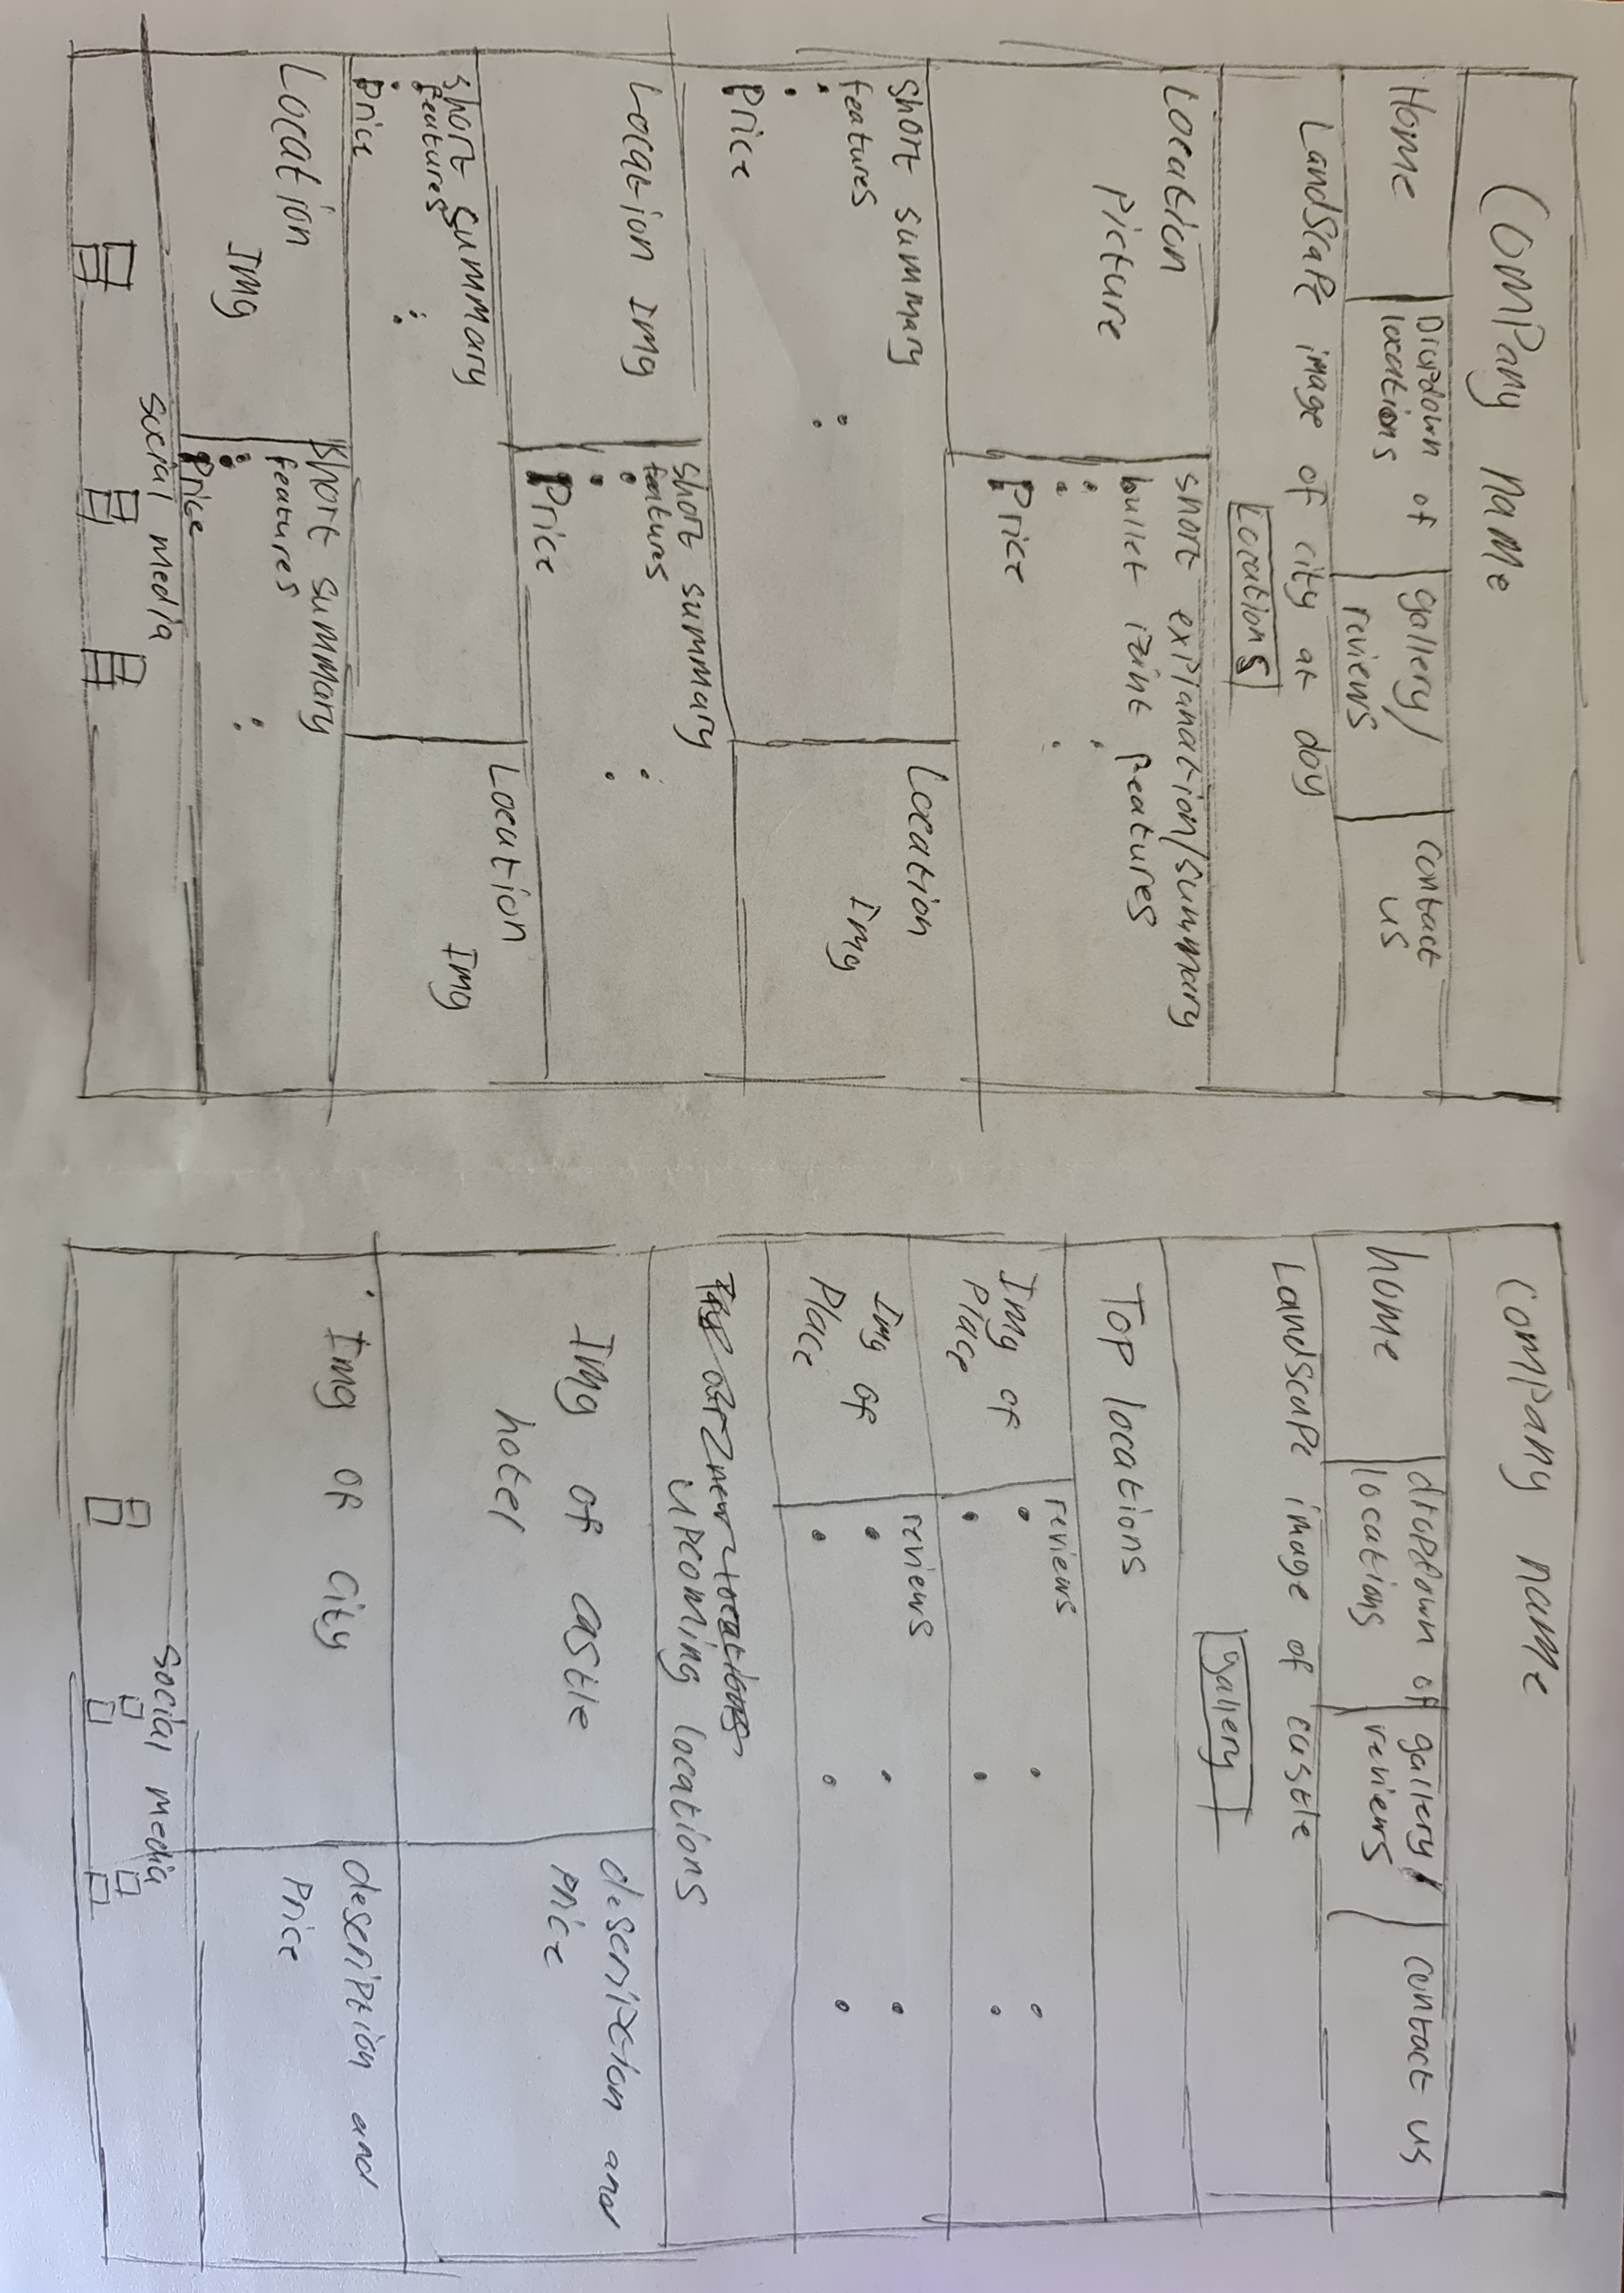 Company name
Home
Dropdown of
locations
gallery/
reviews
contact
us
Landscape image of city at day
Locations
Location
Picture
short explanation/summary
bullet point features
Price
short summary
features
Price
Location
Img
Location Img
short summary
features
Price
short summary
features
Price
Location
Img
Location
Img
short summary
features
Price
social media
company name
home
dropdown of
locations
gallery/
reviews
contact us
Landscape image of castle
gallery
Top locations
Img of
Place
reviews
Img of
Place
reviews
new locations
upcoming locations
Img of castle
hotel
description and
price
Img of city
description and
Price
social media